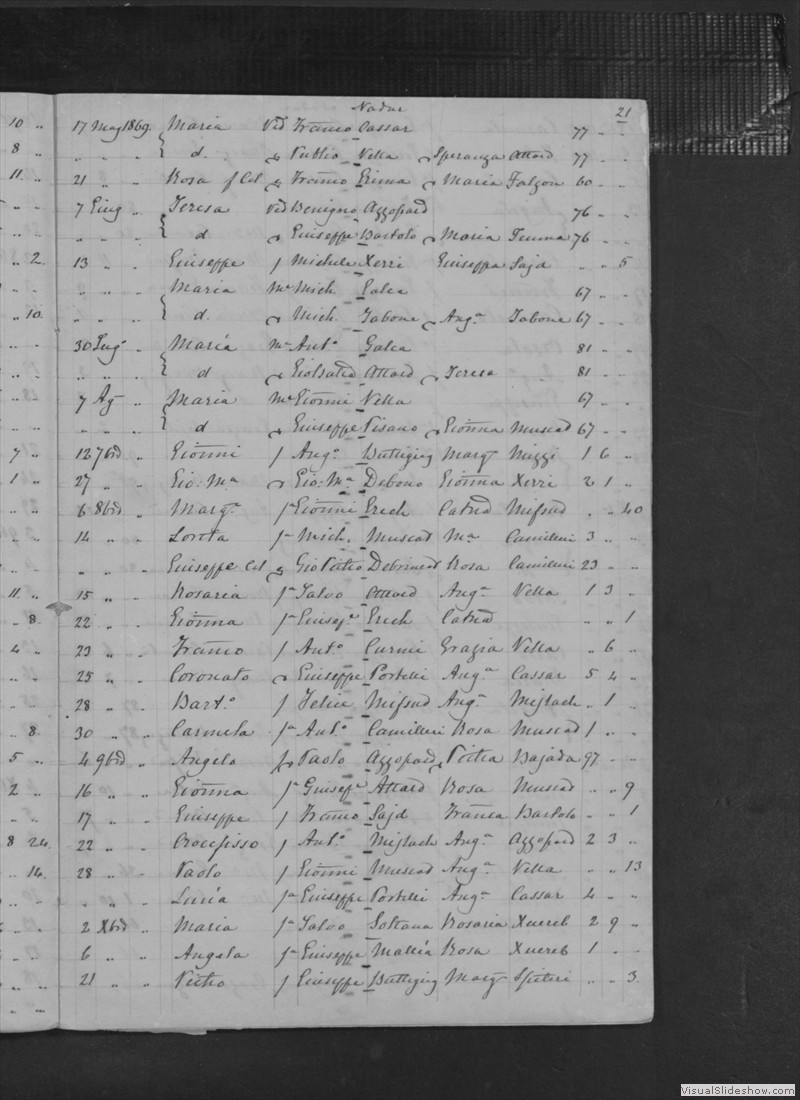 Nadur 21
10 " 17 May 1869. Maria Ved Franco Cassar 77 " "
8 " " " " d. Publio Vella Speranza Attard 77 " "
11. " 21 " " Rosa f Cel Franco Grima Maria Falzon 60 " "
7 Giug " Teresa Ved Benigno Azzopard 76 " "
" " " d Giuseppe Bartolo Maria Teuma 76 " "
" 2. 13 " " Giuseppe f Michele Xerri Giuseppa Sajd " " 5
" " " Maria Me Mich. Galea 67 " "
" 10. " " " d. Mich. Tabone Anga Tabone 67 " "
30 Lugo " Maria Me Anto Galea 81 " "
" " " d Attard Teresa 81 " "
7 Ag " Maria Me Gionni Vella 67 " "
" " " d Giuseppe Pisano Gionna Muscad 67 " "
7 " 12 7bre " Gionni f Ango Buttigieg Marga Mizzi 1 6 "
1 " 27 " " Gio: Ma Gio: Ma Debono Gionna Xerri 2 1 "
6 8bre " Marga fa Gionni Grech Catna Mifsud " " 40
14 " " Loreta fa Mich. Muscat Ma Camilleri 3 " "
" " " Giuseppe Cel Gio Debrincat Rosa Camilleri 23 " "
11. " 15 " " Rosaria fa Salvo Attard Anga Vella 1 3 "
" 8. 22 " " Gionna fa Giusepe Grech Catna " " 1
4 " 23 " " Franco f Anto Curmi Grazia Vella " 6 "
25 " " Coronato Giuseppe Portelli Anga Cassar 5 4 "
28 " " Barto f Felice Mifsud Anga Mizzi " 1 "
" 8. 30 " " Carmela fa Anto Camilleri Rosa Muscad 1 " "
5 " 4 9bre " Angelo Paolo Azzopard Bajada 97 " "
2 " 16 " " Gionna fa Giusepe Attard Rosa Muscad " " 9
17 " " Giuseppe f Franco Sajd Franca Bartolo " " 1
8 24. 22 " " Crocifisso f Anto Anga Azzopard 2 3 "
" 14. 28 " " Paolo f Gionni Muscat Anga Vella " " 13
" " " fa Giuseppe Portelli Anga Cassar 4 " "
2 Xbre " Maria fa Salvo Soltana Rosaria Xuereb 2 9 "
6 " " Angela fa Giuseppe Rosa Xuereb 1 " "
21 " " Pietro f Giuseppe Buttigieg Marga Spiteri " " 3.
VisualSlideshow.com